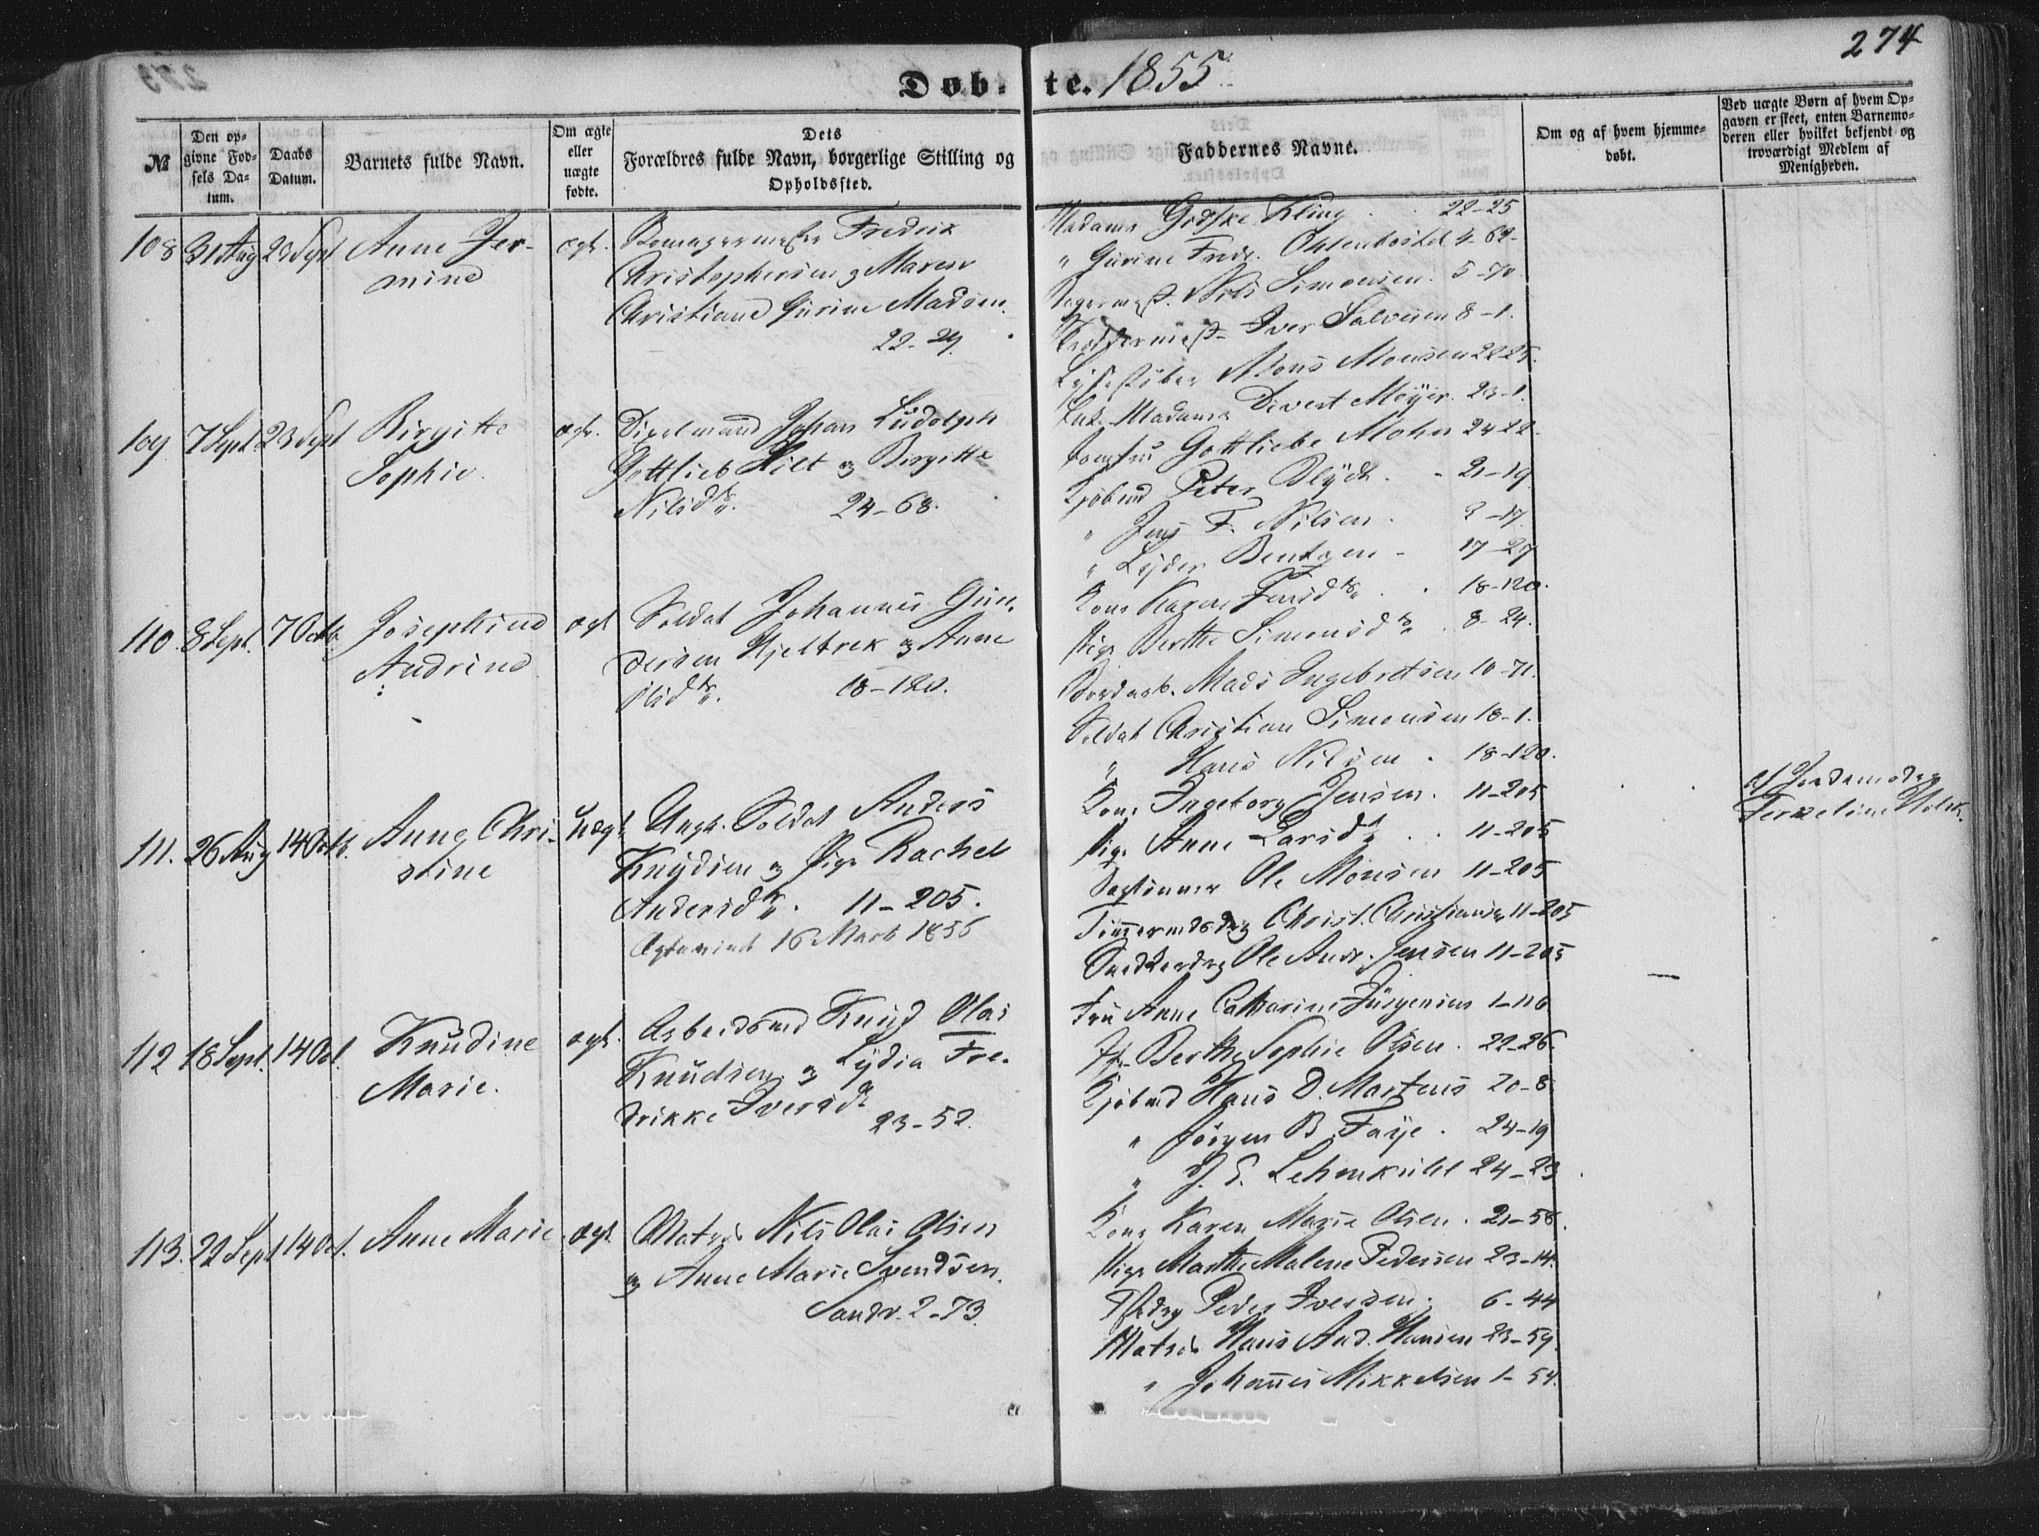 274
Døb- te. 1855
№
Den op-
givne Fød-
sels Da-
tum.
Daabs
Datum.
Barnets fulde Navn.
Om ægte
eller
uægte
fødte.
Dets
Forældres fulde Navn, borgerlige Stilling og
Opholdssted.
Faddernes Navne.
Om og af hvem hjemme-
døbt.
Ved uægte Børn af hvem Op-
gaven er skeet, enten Barnemo-
deren eller hvilket bekjendt og
troværdigt Medlem af
Menigheden.
108. 31 Aug 23 Sept Anne Jer-
mine
ægt.
Fredrik
Christophersen og Maren
Christiane Gurine Madsen.
22-29.
Madame Kling 22-25
" Gurine Fredr. 4-62-
Nils Simonsen. 5-70
Iver Salvesen 8-1.
Mons Monsen 22-25.
109 7 Sept 23 Sept Birgitte
Sophie.
ægt.
Johan Ludolph
Gottlieb Hilt og Birgitte
Nilsdtr. 24-68.
Madame Divert Meyer. 23-1.
Jomfru Gottliebe Mohn 24-22.
Kjøbmd Peter Blydt. 21-19.
" Jens F. Nilsen. -17
" Lyder Bentzen - 17-27
110. 8 Sept. 7 Octb. Josephine
Andrine
ægt
Soldat Johannes Gun-
dersen Hjeltrek og Anne
Olsdtr. 18-120.
Kone Karen 18-120.
Pige Berthe Simonsdtr. 8-24.
Mads Ingebretsen 10-71.
Soldat Christian Simonsen 18-1.
" Hans Nilsen. 18-120.
111. 26 Aug 14 Octb. Anne Chri-
stine
Uægt
Ungk. Soldat Anders
Knudsen og Pige Rachel
Andersdtr. 11-205.
16 Marts 1856
Kone Ingeborg Jensen. 11-205
Pige Anne Larsdtr. 11-205
Ole Monsen 11-205
Christ. Christiansen 11-205
Ole Andr. Jensen 11-205
af Jordemoder
112 18 Sept. 14 Oct. Knudine
Marie.
ægt.
Arbeidsmd Knud Olai
Knudsen og Lydia Fre-
drikke Iversdtr
23-52.
Fru Anne Catharine Jürgensen 1-110
Jfr Berthe Sophie Olsen. 22-26.
Kjøbmd Hans D. Martens 20-8
" Jørgen B. Faye. 24-19
" J. E. Lehmkuhl 24-23
113. 22 Sept 14 Oct. Anne Marie
ægt.
Matros Nils Olai Olsen
og Anne Marie Svendsen.
Sandv. 2-73.
Kone Karen Marie Olsen. 21-58.
Pige Marthe Malene Pedersen 23-14.
Peder Iversen. 6-44
Matros Hans And. Hansen 23-59.
" Johannes Mikkelsen 1-54.